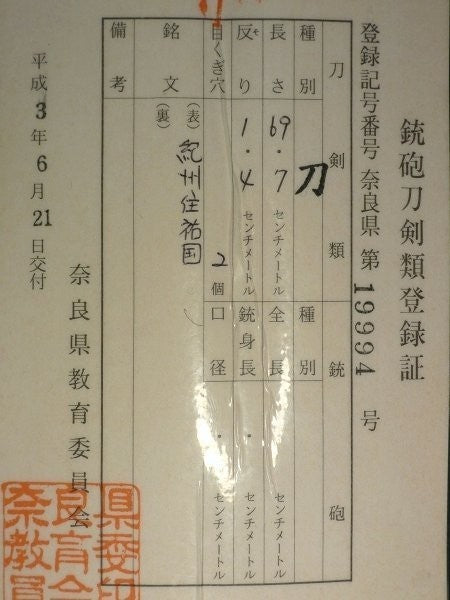 銃砲刀剣類登録証
登録記号番号 奈良県 第 19994 号
刀剣類
銃砲
種別 刀
種別
長さ 69.7 センチメートル
全長 . センチメートル
反り 1.4 センチメートル
ソ
銃身長 . センチメートル
目くぎ穴 2個
口径 . センチメートル
銘文 (表) 紀州住祐国
(裏)
備考
平成3年6月21日交付
奈良県教育委員会
奈良県教育委員会印